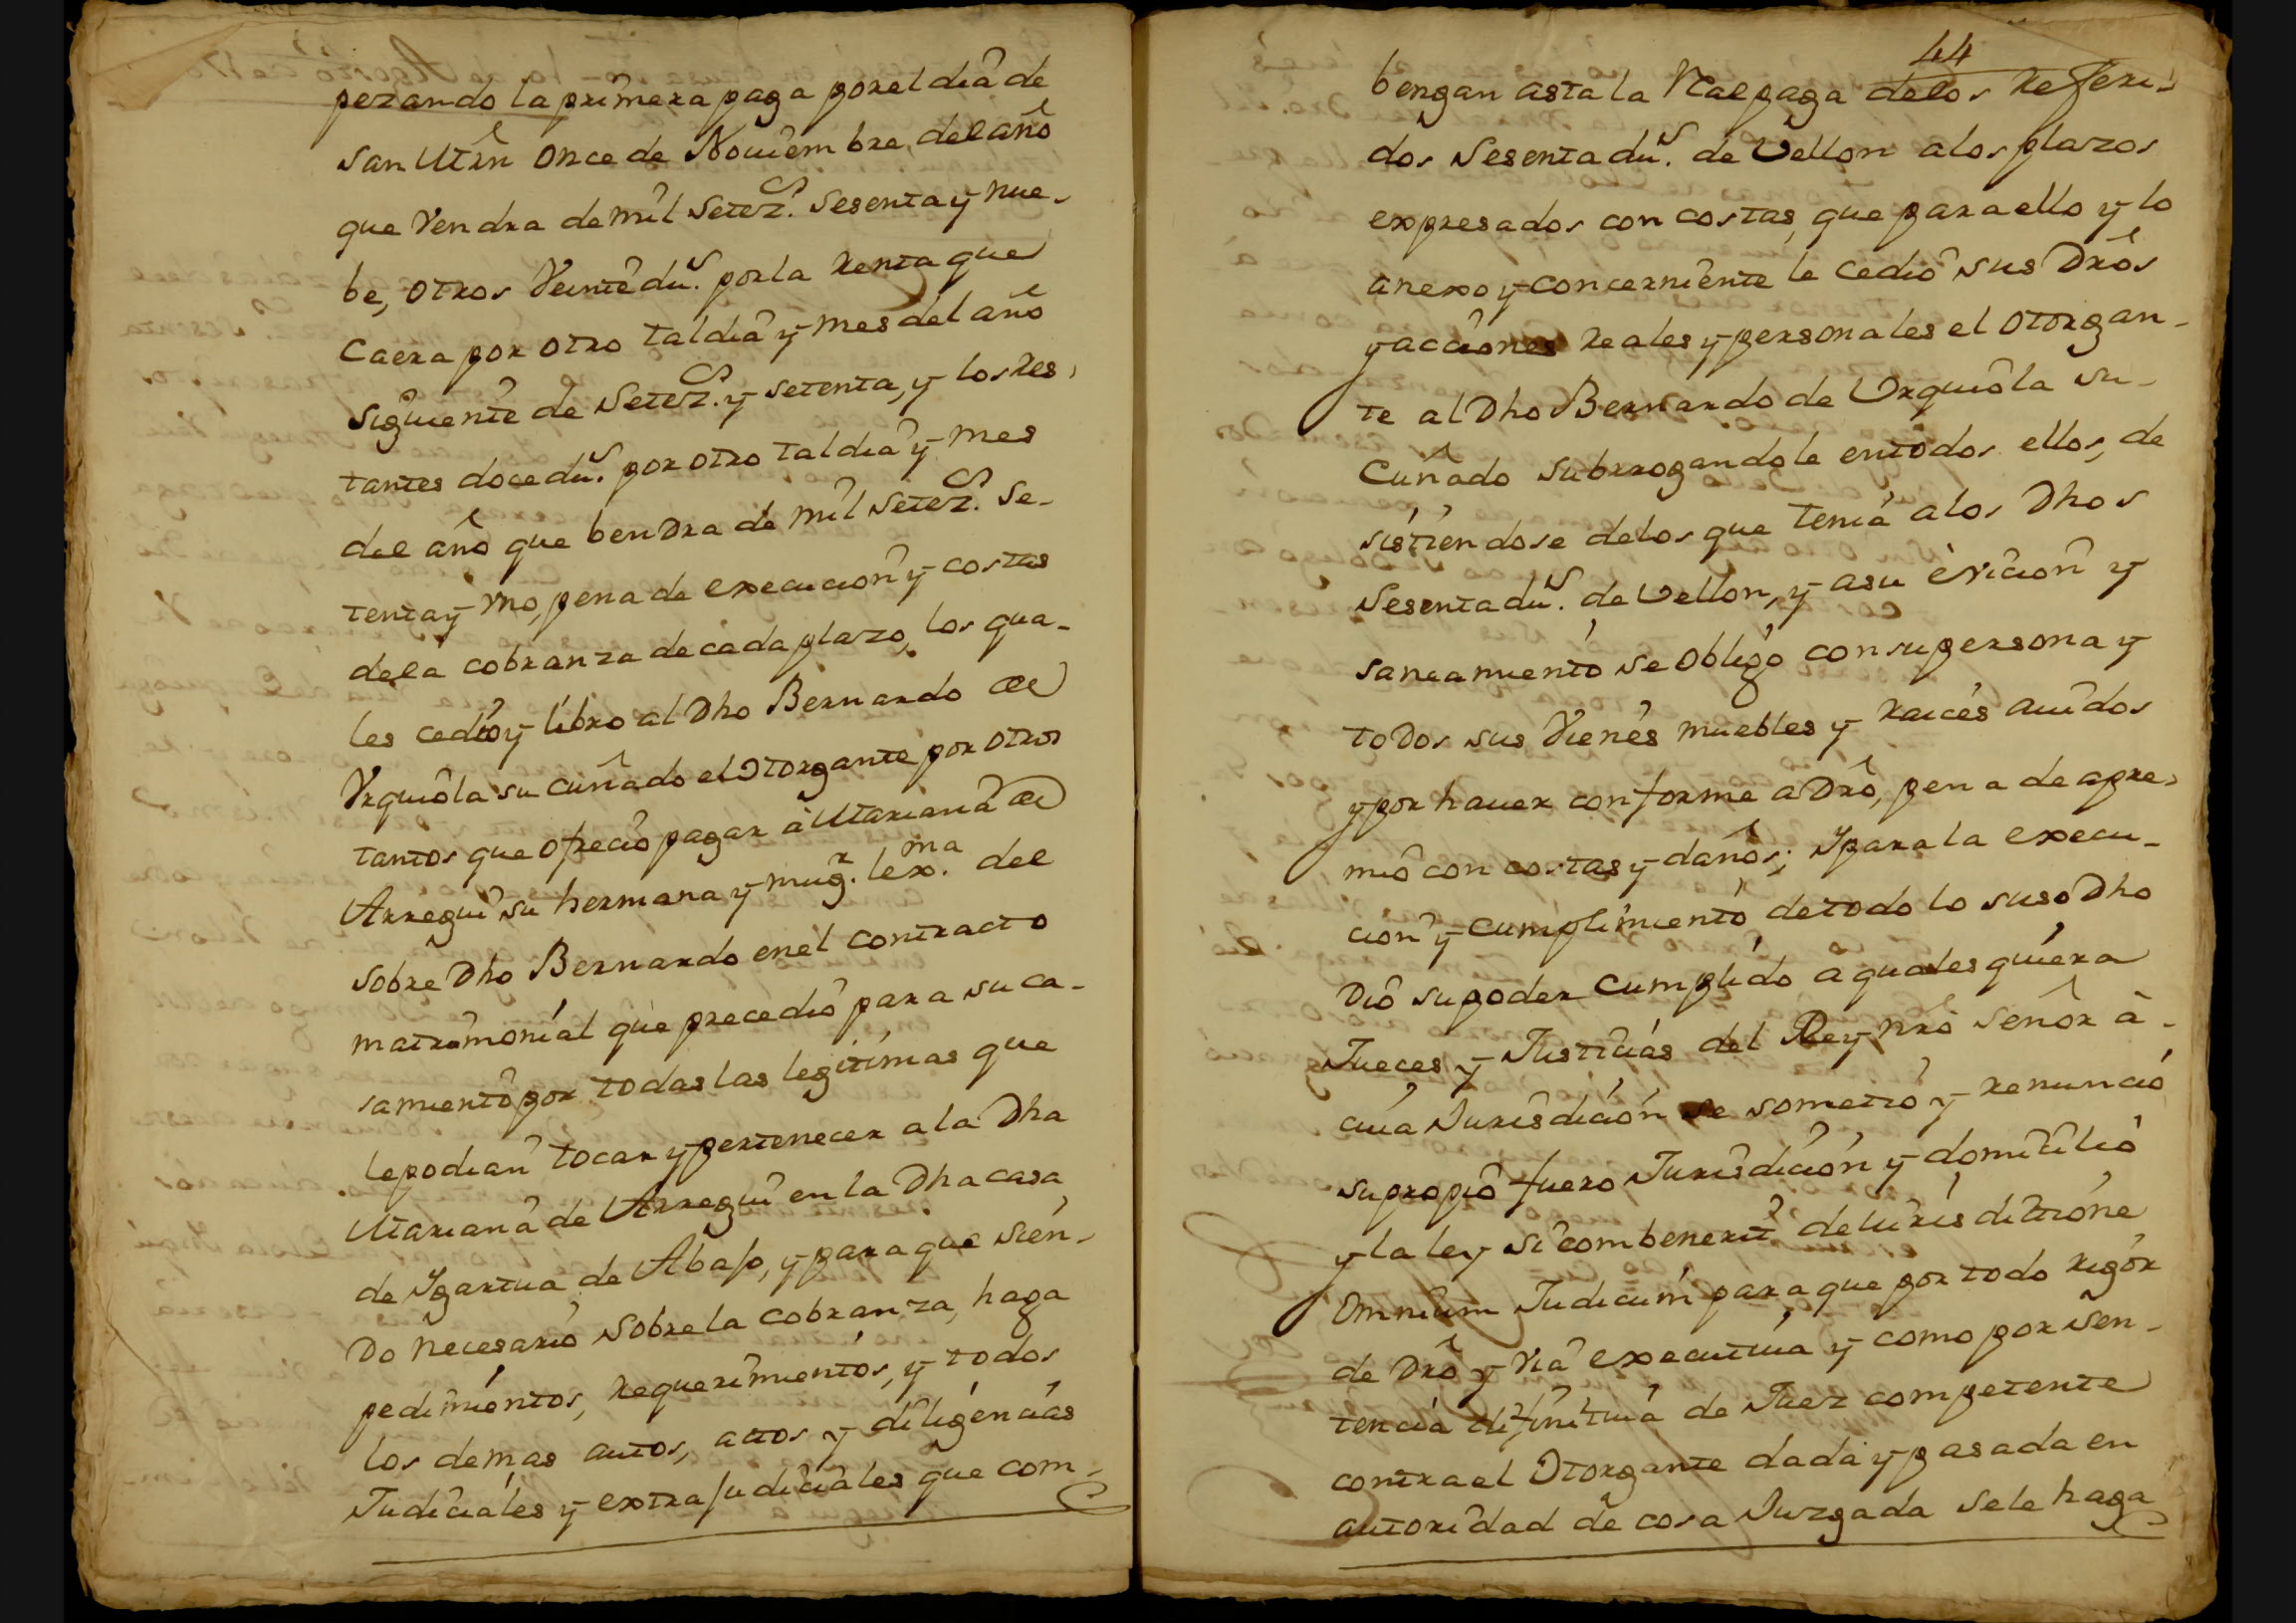 pezando la primera paga por el dia de
San Mrn once de Noviembre, del año
que vendra de mil Setezs. Sesenta y nue-
be, otros Veinte dus. por la Renta que
Caera por otro tal dia y mes del año
Siguiente de Setezs. y setenta, y los Res-
tantes doce dus. por otro tal dia y mes
del año que bendra de mil setezs. se-
tenta y vno, pena de execucion y costas
de la cobranza de cada plazo, los qua-
les cedio y libro al Dho Bernardo de
Vrquiola su cuñado el Otorgante por otros
tantos que ofrecio pagar à Mariana de
Arregui su hermana y mugr. lexma. del
sobre Dho Bernardo en el contracto
matrimonial que precedio para su ca-
samiento por todas las legitimas que
le podian tocar y pertenecer a la Dha
Mariana de Arregui en la Dha casa
de Ygartua de Abajo, y para que sien-
do necesario sobre la cobranza, haga
pedimientos, Requerimientos, y todos
los demas autos, actos y diligencias
Judiciales y extrajudiciales que com-
44
bengan asta la Real paga de los Referi-
dos Sesenta dus. de Vellon a los plazos
expresados con costas, que para ello y lo
anexo y concerniente le cedio sus Dros
y acciones Reales y personales el otorgan-
te al Dho Bernardo de Vrquiola su
Cuñado subrrogandole en todos ellos, de
sistiendose de los que tenia a los Dhos
Sesenta dus. de Vellon, y a su èvicion y
saneamiento se obligò con su persona y
todos sus Vienes muebles y Raices auidos
y por hauer conforme a Dro, pena de apre-
mio con costas y daños; Y para la execu-
cion y cumplimiento de todo lo suso Dho
Dio su poder cumplido a quales quiera
Jueces y Justicias del Rey nro señor à
cuia Jurisdicion se sometio y renunciò
su propio fuero Jurisdicion y domicilio
y la ley si combenerit de Iurisdittione
omnium Judicum para que por todo rigor
de Dro y via executiua y como por sen-
tencia difinitiua de Juez competente
contra el Otorgante dada y pasada en
autoridad de cosa Juzgada se le haga